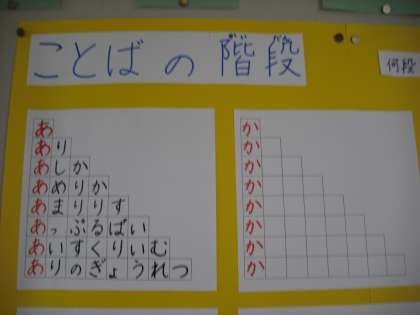 ことばの階段
何段
あ
あり
あしか
あめりか
あまりりす
あっぷるぱい
あいすくりいむ
ありのぎょうれつ
か
か
か
か
か
か
か
か